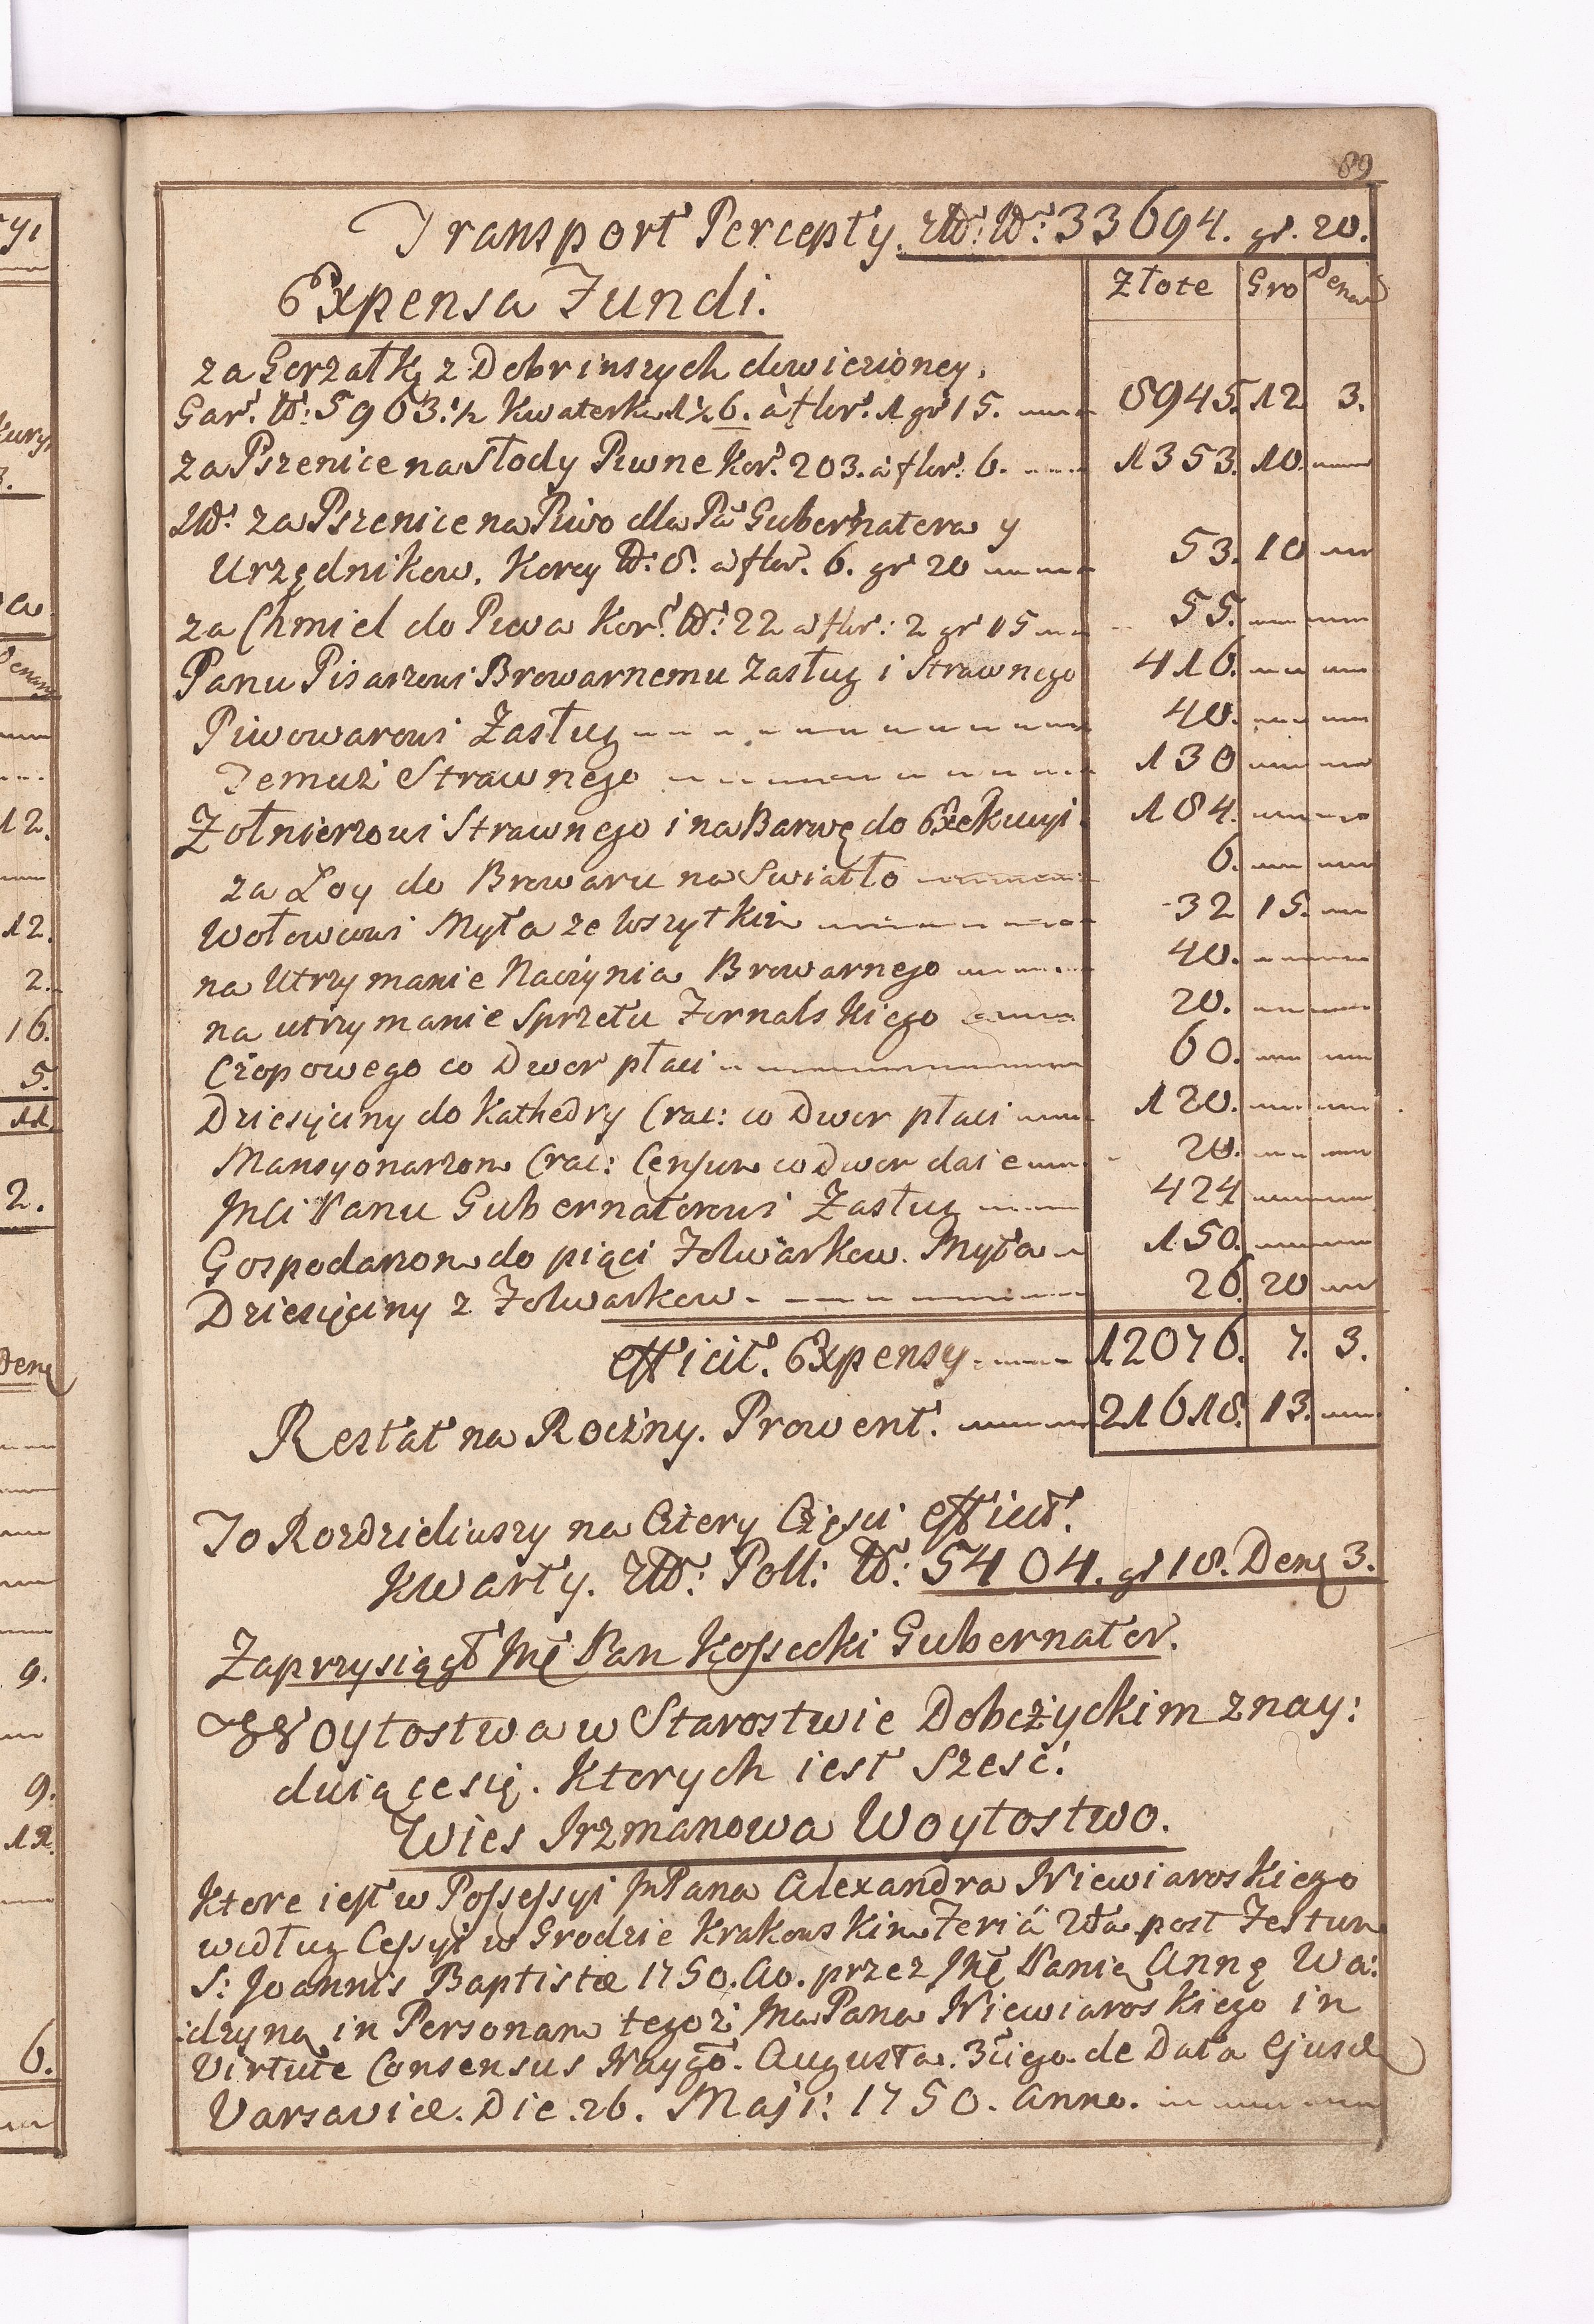 89
Transport Percepty. Zł: Nr: 33694. gr. 20.
Złote Gro Denar
Expensa Fundi.
za Gorzałkę z Dobr inszych dowiezioney.
Gar. Nr: 5963. ½ Kwaterki 1½ 6. à flor. 1 gr 15. 8945. 12. 3.
za Pszenice na Słody Piwne Kor. 203. à flor. 6. 1353. 10.
za Pszenice na Piwo dla Pa Gubernatora y
Urzędnikow. Korcy Nr: 8. à flor. 6. gr 20 53. 10
za Chmiel do Piwa Kor. Nr: 22 à flor: 2 gr 15 55.
Panu Pisarzowi Browarnemu Zasług i Strawnego 416.
Piwowarowi Zasług 40.
Temuż Strawnego 130
Zołnierzowi Strawnego i na Barwę do Exekucyi 184.
za Łoy do Browaru na Swiatło 6.
Wołowcowi Myta ze wszytkim 32 15.
na Utrzymanie Naczynia Browarnego 40.
na utrzymanie Sprzętu Fornalskiego 20.
Czopowego co Dwor płaci 60.
Dziesięciny do Kathedry Crac: co Dwor płaci 120.
Mansyonarzom Crac: Censum co Dwor daie 20.
JMCi Panu Gubernatorowi Zasług 424
Gospodarzom do piąci Folwarkow. Myta 150.
Dziesięciny z Folwarkow. 26. 20
efficit. Expensy. 12076. 7. 3.
Restat na Roczny. Prowent. 21618. 13.
To Rozdzieliwszy na Cztery Części efficit.
Kwarty. Zł: Poll: Nr: 5404. gr 18. Denę 3.
Zaprzysiągł JMę Pan Kossecki Gubernator.
Woytostwa w Starostwie Dobczyckim znay:
duiące się. Ktorych iest Szesć.
Wies Irzmanowa Woytostwo.
Ktore iest w Possessyi JmPana Alexandra Niewiaroskiego
według Cessyi w Grodzie Krakowskim Feriá post Festum
S: Joannis Baptistæ 1750. Ao. przez JMę Panią Annę Wa:
:idzyną in Personam tegoż Jma Pana Niewiaroskiego in
Virtute Consensus Naygo. Augusta. 3ciego. de Data Ejusd
Varsaviæ. Die. 26. Maji: 1750. Anno.